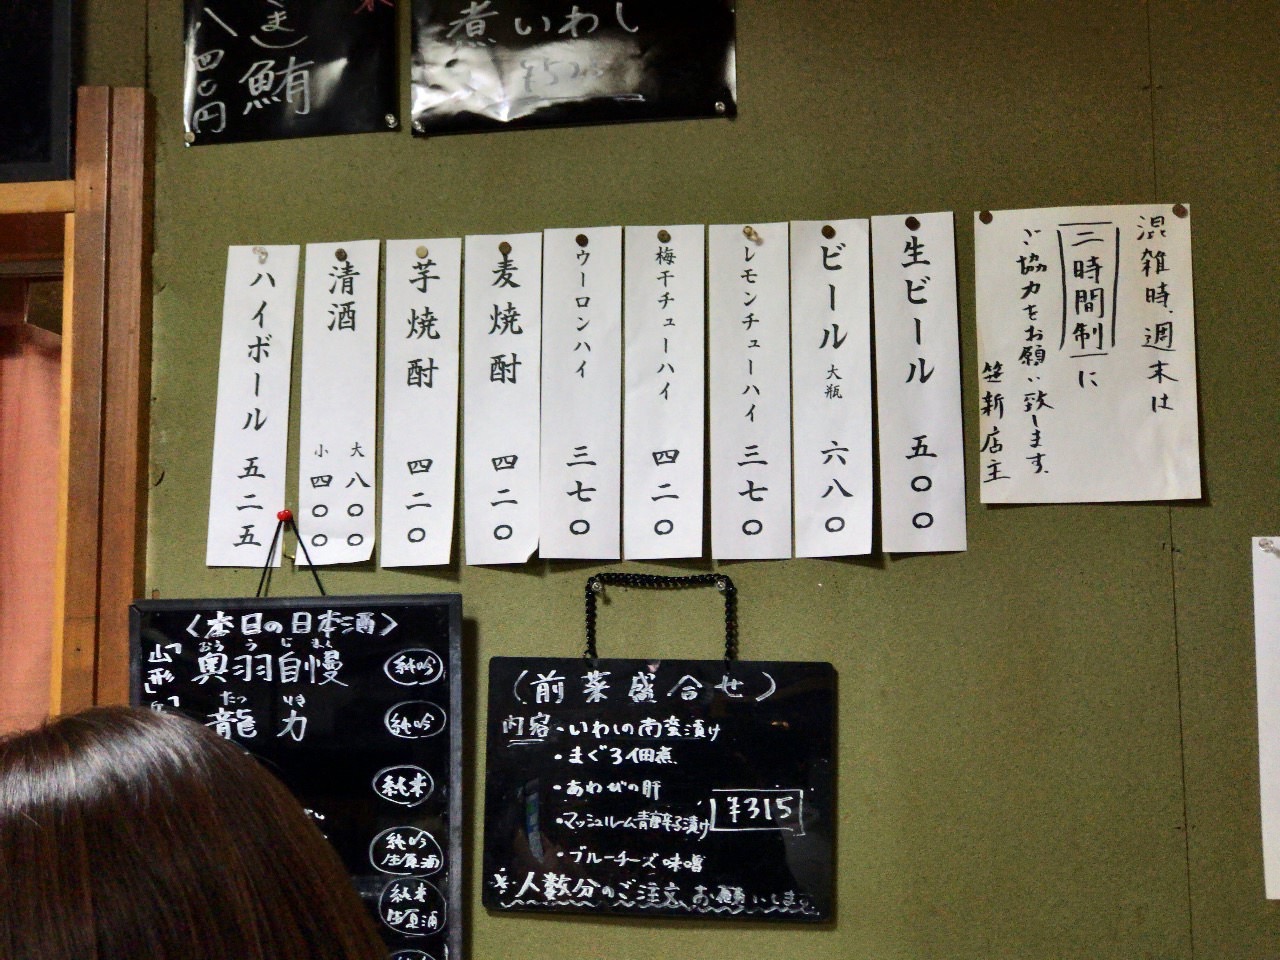 まし鮪
八四〇円
煮いわし
混雑時、週末は
二時間制に
ご協力をお願い致します。
笹新店主
生ビール 五〇〇
ビール 大瓶 六八〇
レモンチューハイ 三七〇
梅干チューハイ 四二〇
ウーロンハイ 三七〇
麦焼酎 四二〇
芋焼酎 四二〇
清酒 大 八〇〇
小 四〇〇
ハイボール 五二五
〈本日の日本酒〉
「山形」
おうう じまん
奥羽自慢 純吟
たつ りき
龍力 純吟
純米
純吟生原酒
純米生原酒
(前菜盛合せ)
内容・いわしの南蛮漬け
・まぐろ佃煮
・あわびの肝
・マッシュルーム青唐辛子漬け
¥315
・ブルーチーズ味噌
※人数分のご注文お願いします